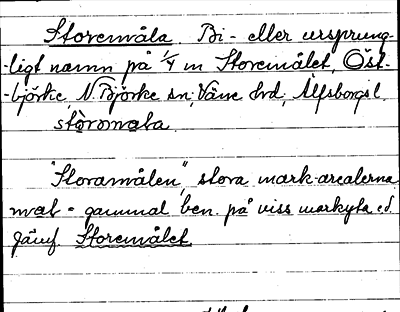 Storemåla, Bi- eller ursprung-
-ligt namn på 1/4 m Storemålet, Öst-
-björke, N. Björke sn, Väne hrd, Älfsborgs l.
stòromåla
"Storamålen", stora mark-arealerna
mål = gammal ben. på viss markyta ed.
Jämf. Storemålet